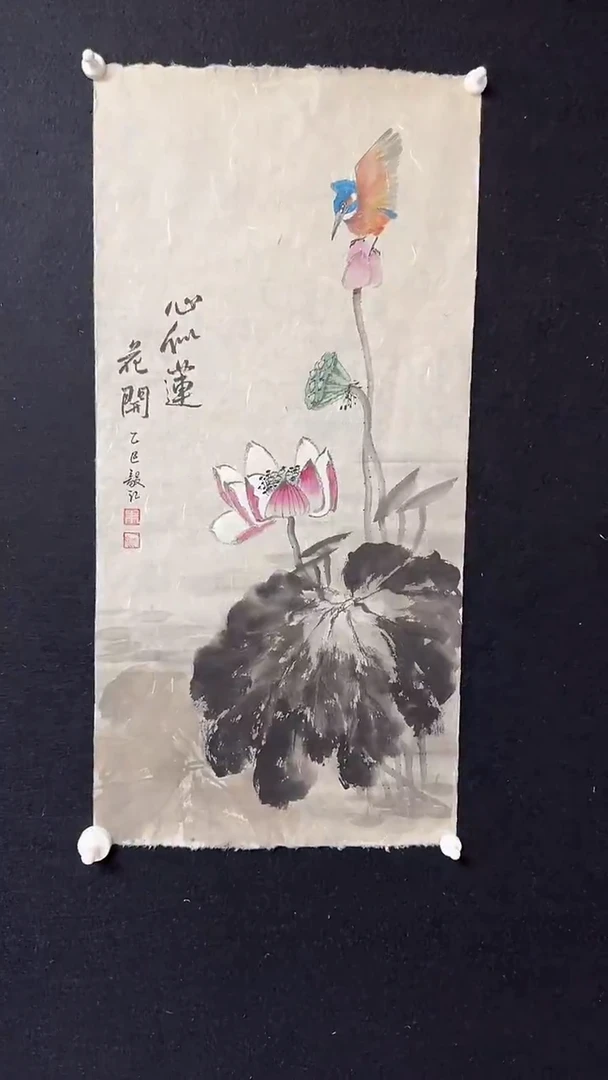 心似蓮
花開
乙巳毅記